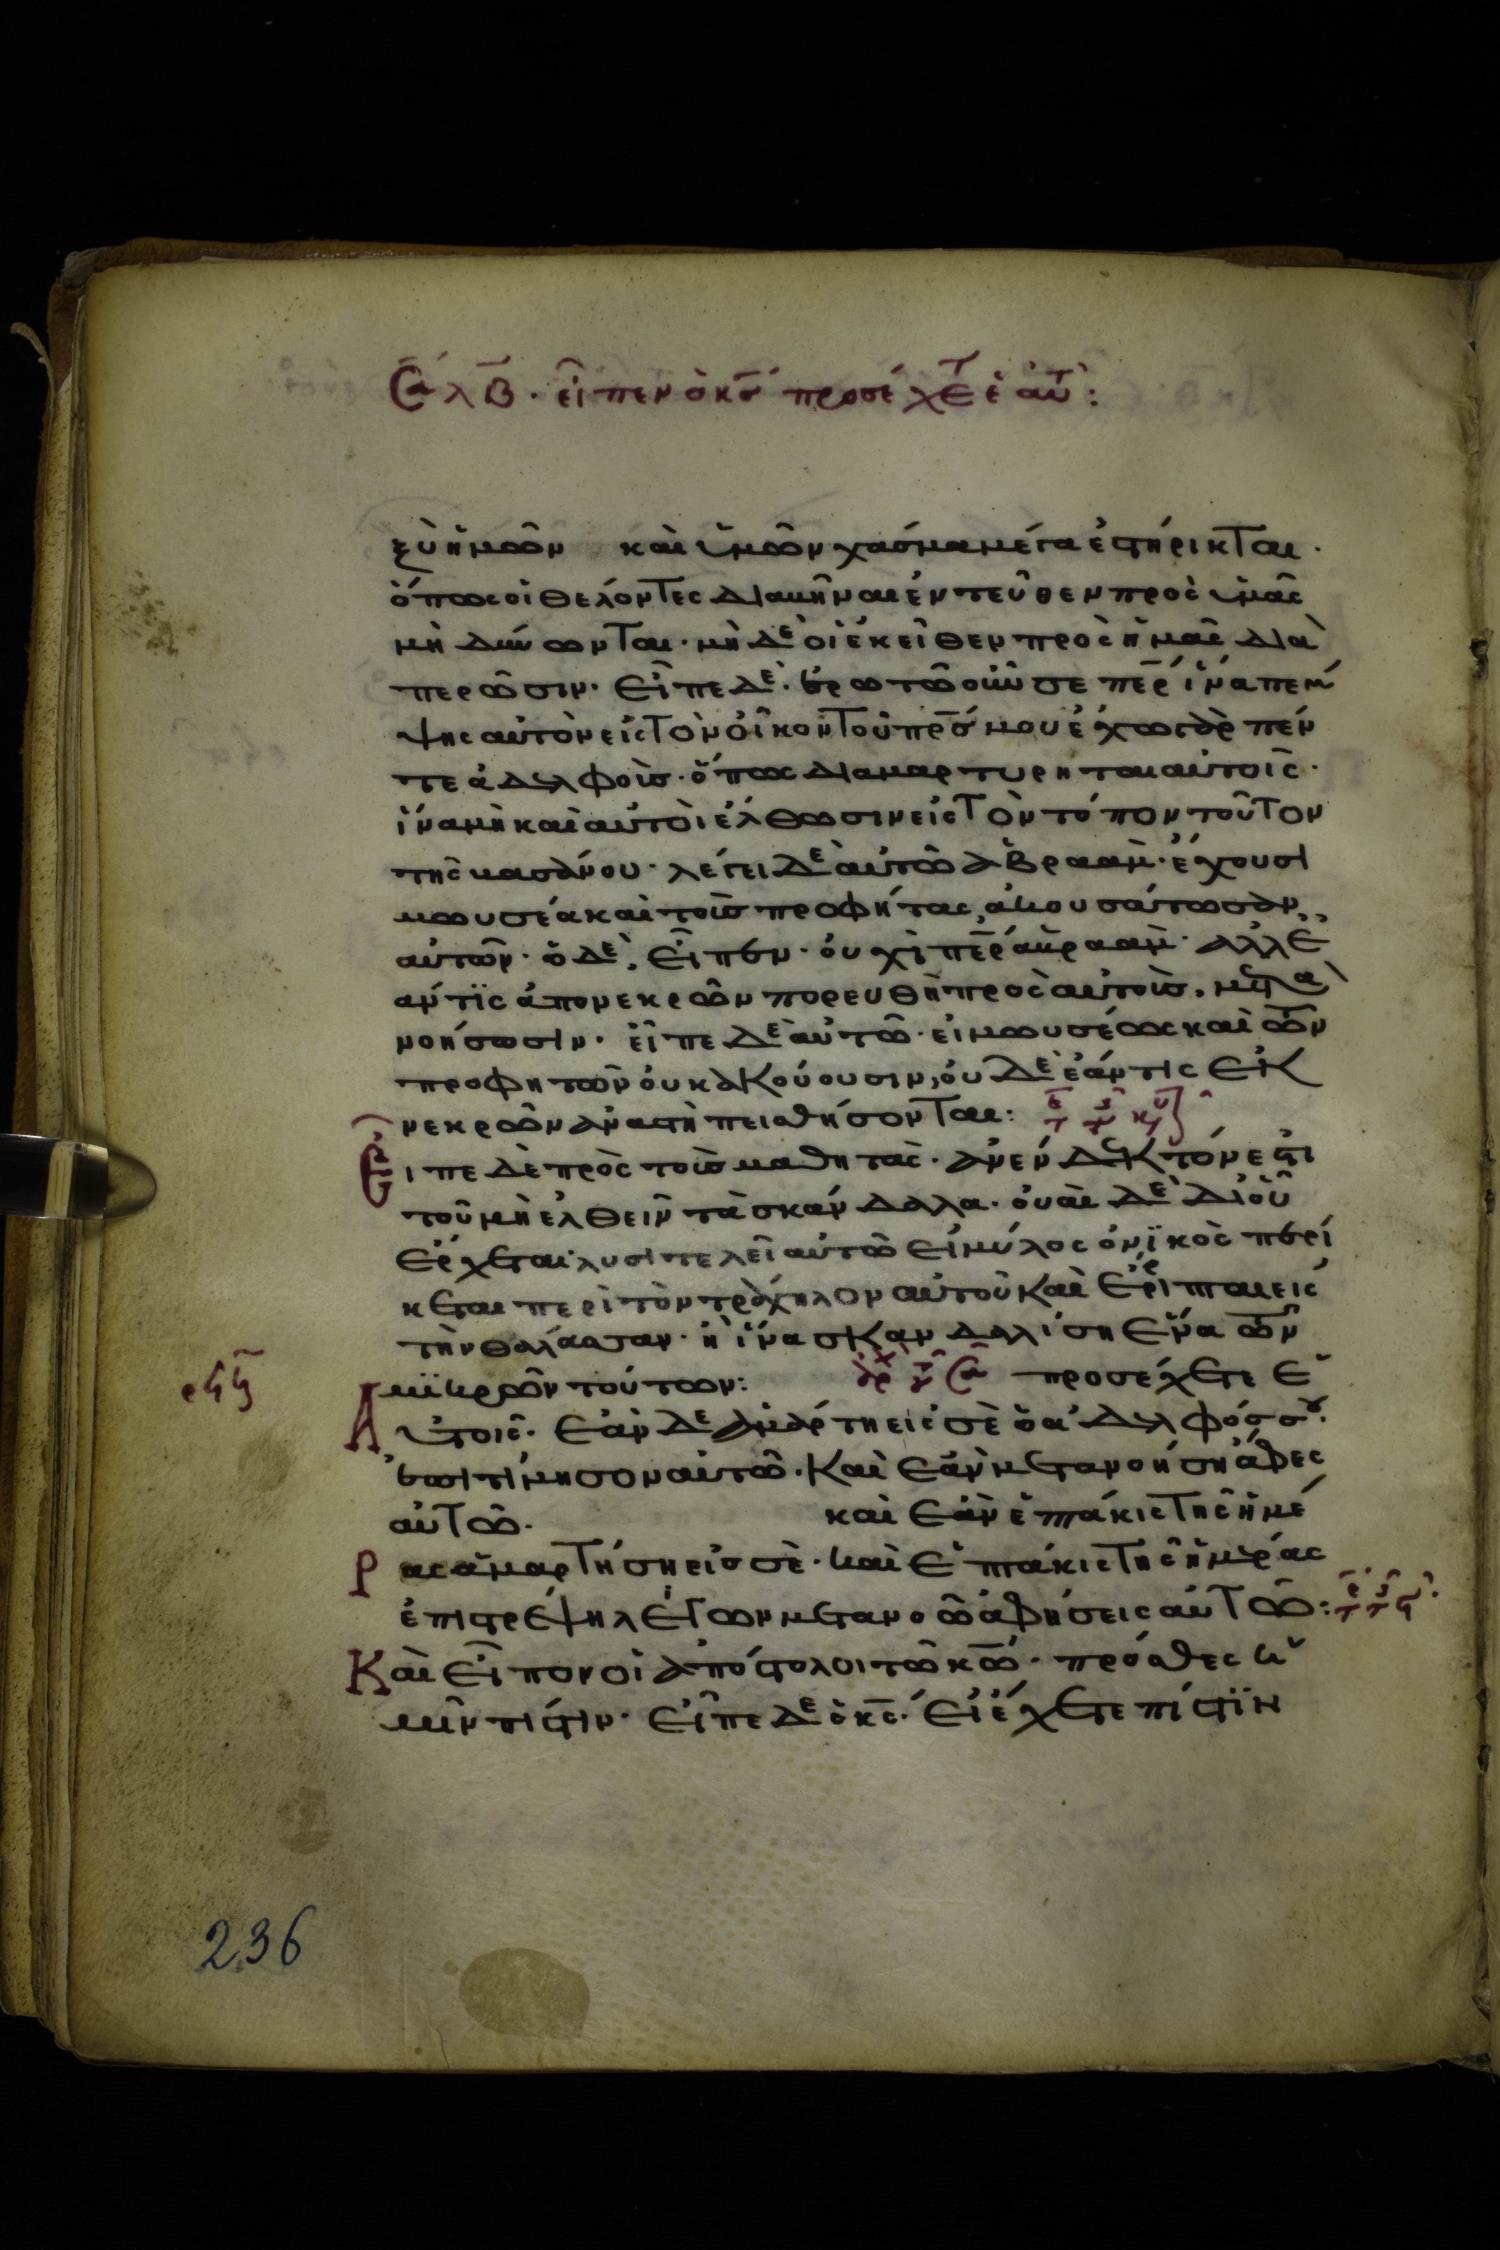 λ̅β̅. εἶπεν ὁ κ̅ς̅ προσέχετ ἑαυτ:
ξὺ ἡμῶν καὶ ὑμῶν χάσμα μέγα ἐστήρικται.
ὅπως οἱ θέλοντες διαβῆναι ἐντεῦθεν πρὸς ὑμᾶς
μὴ δύνωνται. μὴ δὲ οἱ ἐκεῖθεν πρὸς ἡμᾶς δια
περῶσιν. εἶπε δέ. ἐρωτῶ οὖν σε π̅ε̅ρ ἵνα πέμ
ψης αὐτὸν εἰς τὸν οἶκον τοῦ π̅ρ̅ς̅ μου ἔχω γὰρ πέν
τε ἀδελφοὺς. ὅπως διαμαρτύρηται αὐτοῖς.
ἵνα μὴ καὶ αὐτοὶ ἔλθωσιν εἰς τὸν τόπον τοῦτον
τῆς βασάνου. λέγει δὲ αὐτῶ ἀβραάμ. ἔχουσι
μωυσέα καὶ τοὺς προφήτας, ἀκουσάτωσαν
αὐτῶν. ὁ δὲ, εἶπεν. οὐχὶ π̅ε̅ρ ἀβραὰμ. ἀλλ' ἐ
άν τϊς ἀπο νεκρῶν πορευθῆ πρὸς αὐτοὺς, μετα
νοήσωσιν. εἶπε δὲ αὐτῶ. εἰ μωυσέως καὶ τῶν
προφητῶν οὐκ ἀκούουσιν, οὐδὲ ἐάν τις ἐκ
νεκρῶν ἀναστῆ πεισθήσονται:
Εἶπε δὲ πρὸς τοὺς μαθητὰς. ἀνένδεκτόν ἐστι
τοῦ μὴ ἐλθεῖν τὰ σκάνδαλα. οὐαὶ δὲ δι οὗ
ἔρχεται. λυσιτελεῖ αὐτῶ εἰ μύλος ὀνϊκὸς περί
κεται περὶ τὸν τράχηλον αὐτοῦ καὶ ἔρριπται εἰς
τὴν θάλασσαν. ἢ ἵνα σκανδαλίση ἕνα τῶν
μϊκρῶν τούτων: προσέχετε ἑ
Αυτοῖς. ἐὰν δὲ ἁμάρτη εἰς σὲ ὁ ἀδελφός σου.
ἐπιτίμησον αὐτῶ. καὶ ἐὰν μετανοήση ἄφες
αὐτῶ. καὶ ἐὰν ἑπτάκις τῆς ἡμέ
Ρας ἁμαρτήση εἰς σὲ. καὶ ἑπτάκις τῆς ἡμέρας
ἐπιστρέψη λέγων μετανοῶ ἀφήσεις αὐτῶ:
Καὶ εἶπον οἱ ἀπόστολοι τῶ κ̅ω̅. πρόσθες ἡ
μῖν πίστιν. εἶπε δὲ ὁ κ̅ς̅. εἰ ἔχετε πίστϊν
236